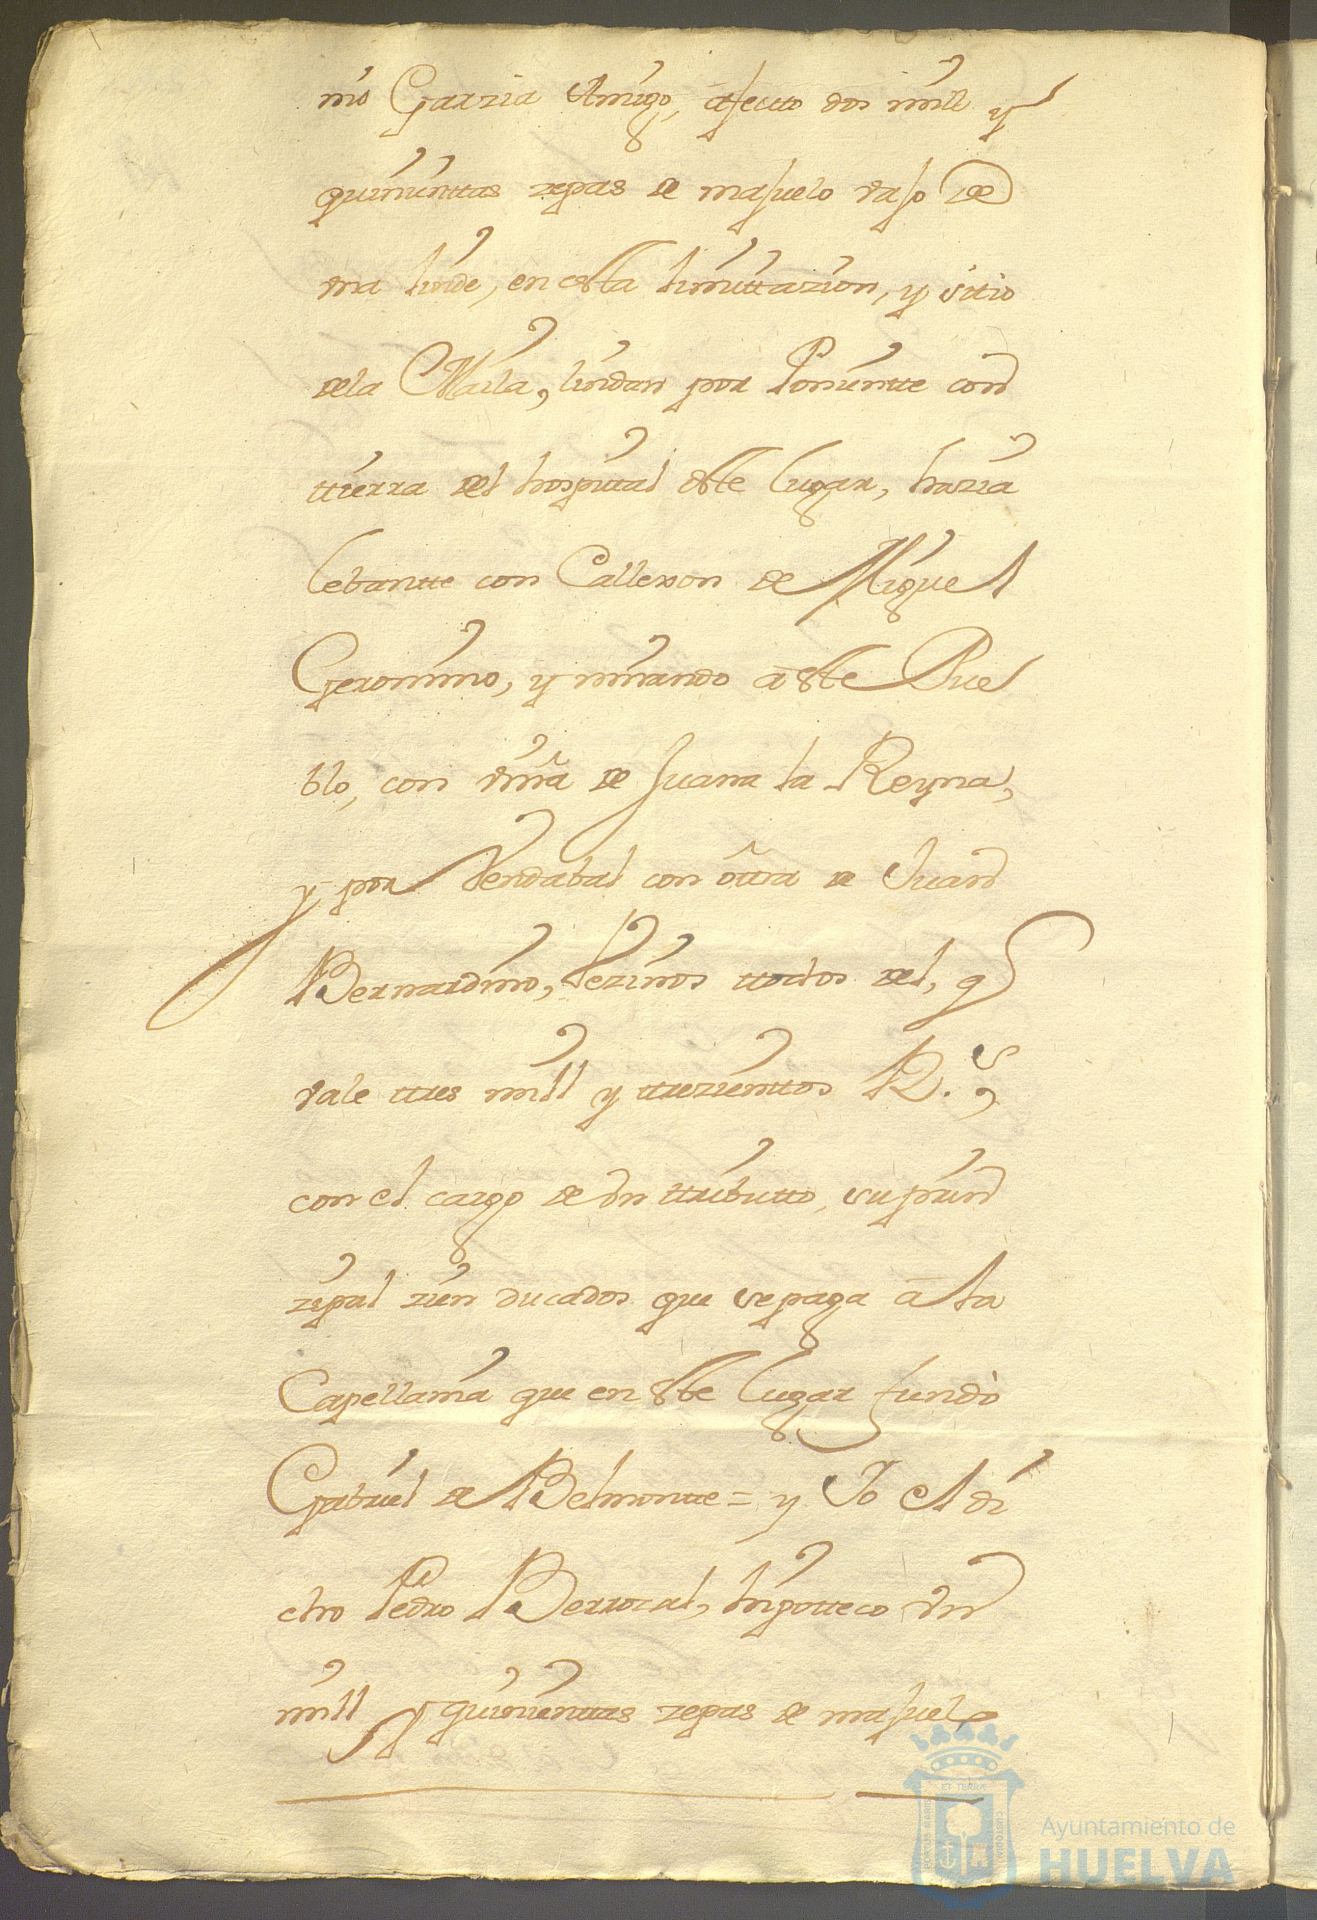 nio Garzia Amigo, afecto dos mill y
quinienttas zepas de majuelo vajo de
vna linde, en esta limittazion, y sitio
dela Maila, lindan por Poniente con
ttierra del hospital este lugar, hazia
lebantte con Callexon de Miguel
Geronimo, y mirando a este Pue
blo, con viña de Juana la Reyna,
y por Vendabal con ottra de Juan
Bernardino, Vezinos ttodos del, q
vale ttres mill y ttrezienttos R.s,
con el cargo de vn ttributto, su prin
zipal zien ducados que se paga a la
Capellania que en este lugar fundò
Gabriel de Belmontte = y Yo el di
cho Pedro Berrocal, hipotteco vn
mill y quinienttas zepas de majuelo
Ayuntamiento de
HUELVA